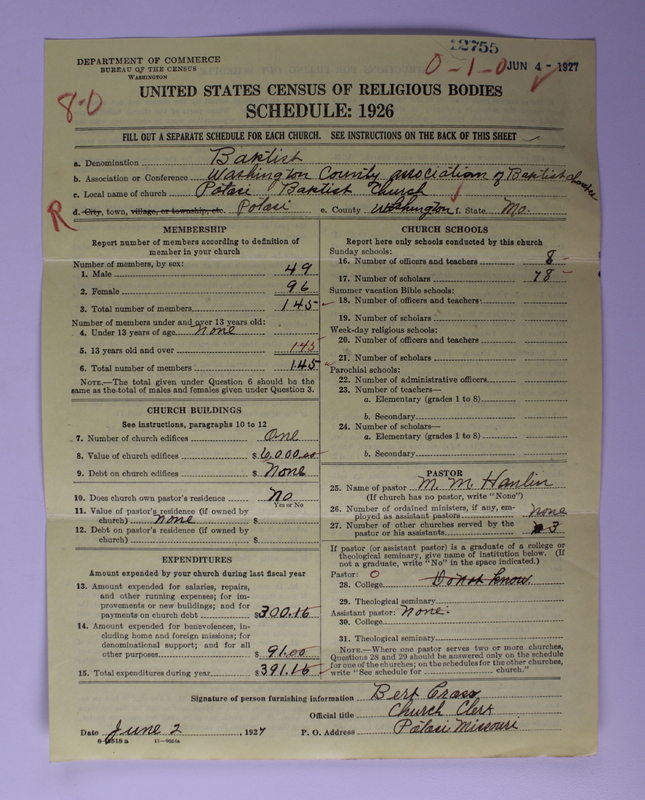 12755
DEPARTMENT OF COMMERCE
BUREAU OF THE CENSUS
WASHINGTON
0-1-0 JUN 4 - 1927
8-0
UNITED STATES CENSUS OF RELIGIOUS BODIES
SCHEDULE: 1926
FILL OUT A SEPARATE SCHEDULE FOR EACH CHURCH. SEE INSTRUCTIONS ON THE BACK OF THIS SHEET
a. Denomination Baptist
b. Association or Conference Washington County association of Baptist
c. Local name of church Potosi Baptist Church
R
d. City, town, village, or township, etc. Potosi e. County Washington f. State Mo.
MEMBERSHIP
Report number of members according to definition of
member in your church
Number of members, by sex:
1. Male 49
2. Female 96
3. Total number of members 145
Number of members under and over 13 years old:
4. Under 13 years of age None
5. 13 years old and over 145
6. Total number of members 145
NOTE.—The total given under Question 6 should be the
same as the total of males and females given under Question 3.
CHURCH BUILDINGS
See instructions, paragraphs 10 to 12
7. Number of church edifices One
8. Value of church edifices $ 6,000.00
9. Debt on church edifices $ None
10. Does church own pastor's residence No
Yes or No
11. Value of pastor's residence (if owned by
church) None $
12. Debt on pastor's residence (if owned by
church) $
EXPENDITURES
Amount expended by your church during last fiscal year
13. Amount expended for salaries, repairs,
and other running expenses; for im-
provements or new buildings; and for
payments on church debt $ 300.15
14. Amount expended for benevolences, in-
cluding home and foreign missions; for
denominational support; and for all
other purposes $ 91.00
15. Total expenditures during year $ 391.15
CHURCH SCHOOLS
Report here only schools conducted by this church
Sunday schools:
16. Number of officers and teachers 8
17. Number of scholars 78
Summer vacation Bible schools:
18. Number of officers and teachers
19. Number of scholars
Week-day religious schools:
20. Number of officers and teachers
21. Number of scholars
Parochial schools:
22. Number of administrative officers
23. Number of teachers—
a. Elementary (grades 1 to 8)
b. Secondary
24. Number of scholars—
a. Elementary (grades 1 to 8)
b. Secondary
PASTOR
25. Name of pastor M. M. Hanlin
(If church has no pastor, write "None")
26. Number of ordained ministers, if any, em-
ployed as assistant pastors None
27. Number of other churches served by the
pastor or his assistants 3
If pastor (or assistant pastor) is a graduate of a college or
theological seminary, give name of institution below. (If
not a graduate, write "No" in the space indicated.)
Pastor: 0
28. College Do not know
29. Theological seminary
Assistant pastor: None.
30. College
31. Theological seminary
NOTE.—Where one pastor serves two or more churches,
Questions 28 and 29 should be answered only on the schedule
for one of the churches; on the schedules for the other churches,
write "See schedule for church."
Signature of person furnishing information Bert
Official title Church Clerk
Date June 2, 1927 P. O. Address Potosi Missouri